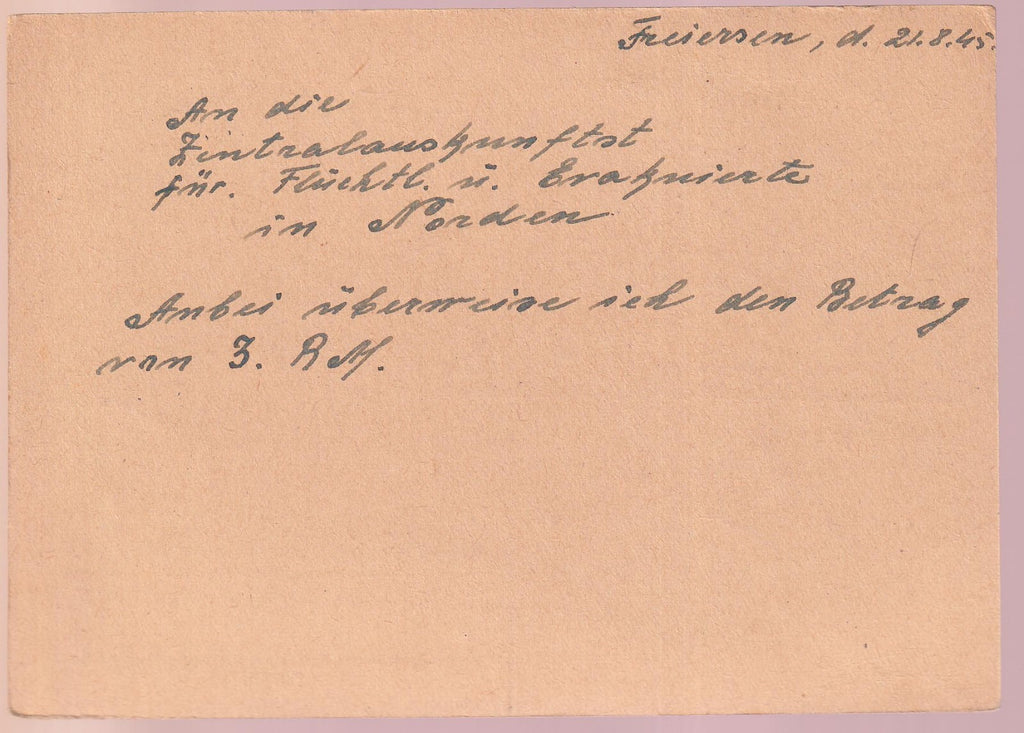 Freiersen, d. 21.8.45.
An die
Zentralauskunftst
für. Flüchtl. u. Evakuierte
in Norden
Anbei überweise ich den Betrag
von 3. RM.